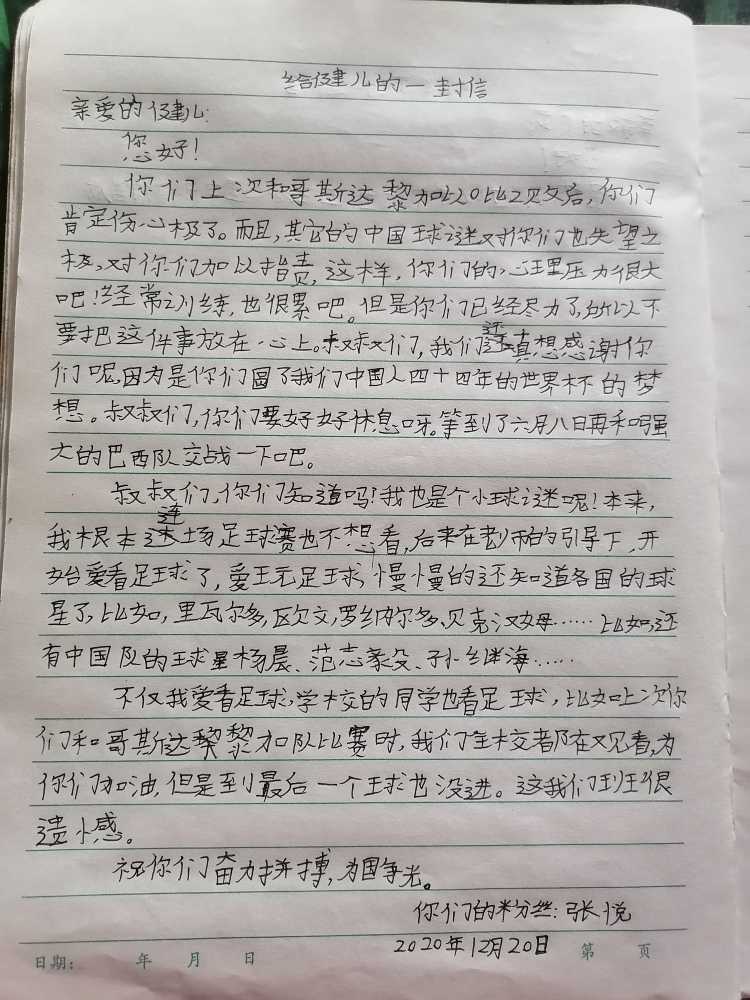 给健儿的一封信
亲爱的健儿:
您好!
你们上次和哥斯达黎加以0比2败后,你们
肯定伤心极了。而且,其它的中国球迷对你们也失望之
极,对你们加以指责,这样,你们的心理压力很大
吧!经常训练,也很累吧。但是你们已经尽力了,所以不
要把这件事放在心上。叔叔们,我们还真想感谢你
们呢,因为是你们圆了我们中国人四十四年的世界杯的梦
想。叔叔们,你们要好好休息呀。等到了六月八日再和吗强
大的巴西队交战一下吧。
叔叔们,你们知道吗?我也是个小球迷呢!本来,
我根本连场足球赛也不想看,后来在老师的引导下,开
始爱看足球了,爱玩足球,慢慢的还知道各国的球
星了,比如,里瓦尔多,区欧文,罗纳尔多、贝克汉母……比如,还
有中国队的球星杨晨、范志毅、孙继海……
不仅我爱看足球,学校的同学也看足球,比如上次你
们和哥斯达黎加队比赛时,我们全校都在观看,为
你们加油,但是到最后一个球也没进。这我们班很
遗憾。
祝你们奋力拼搏,为国争光。
你们的粉丝:张悦
2020年12月20日
日期: 年 月 日 第 页